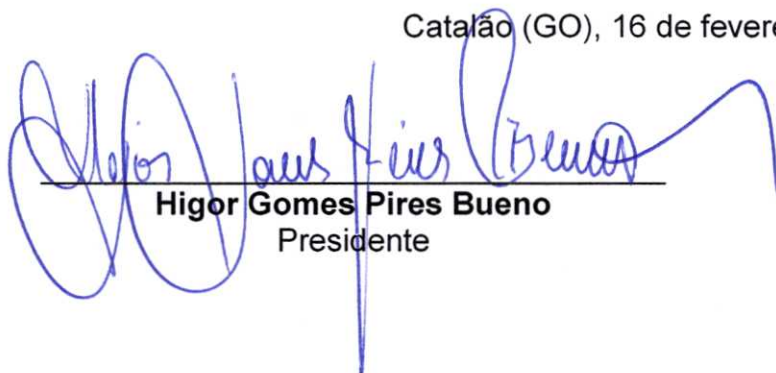 Catalão (GO), 16 de fevere
Higor Gomes Pires Bueno
Higor Gomes Pires Bueno
Presidente